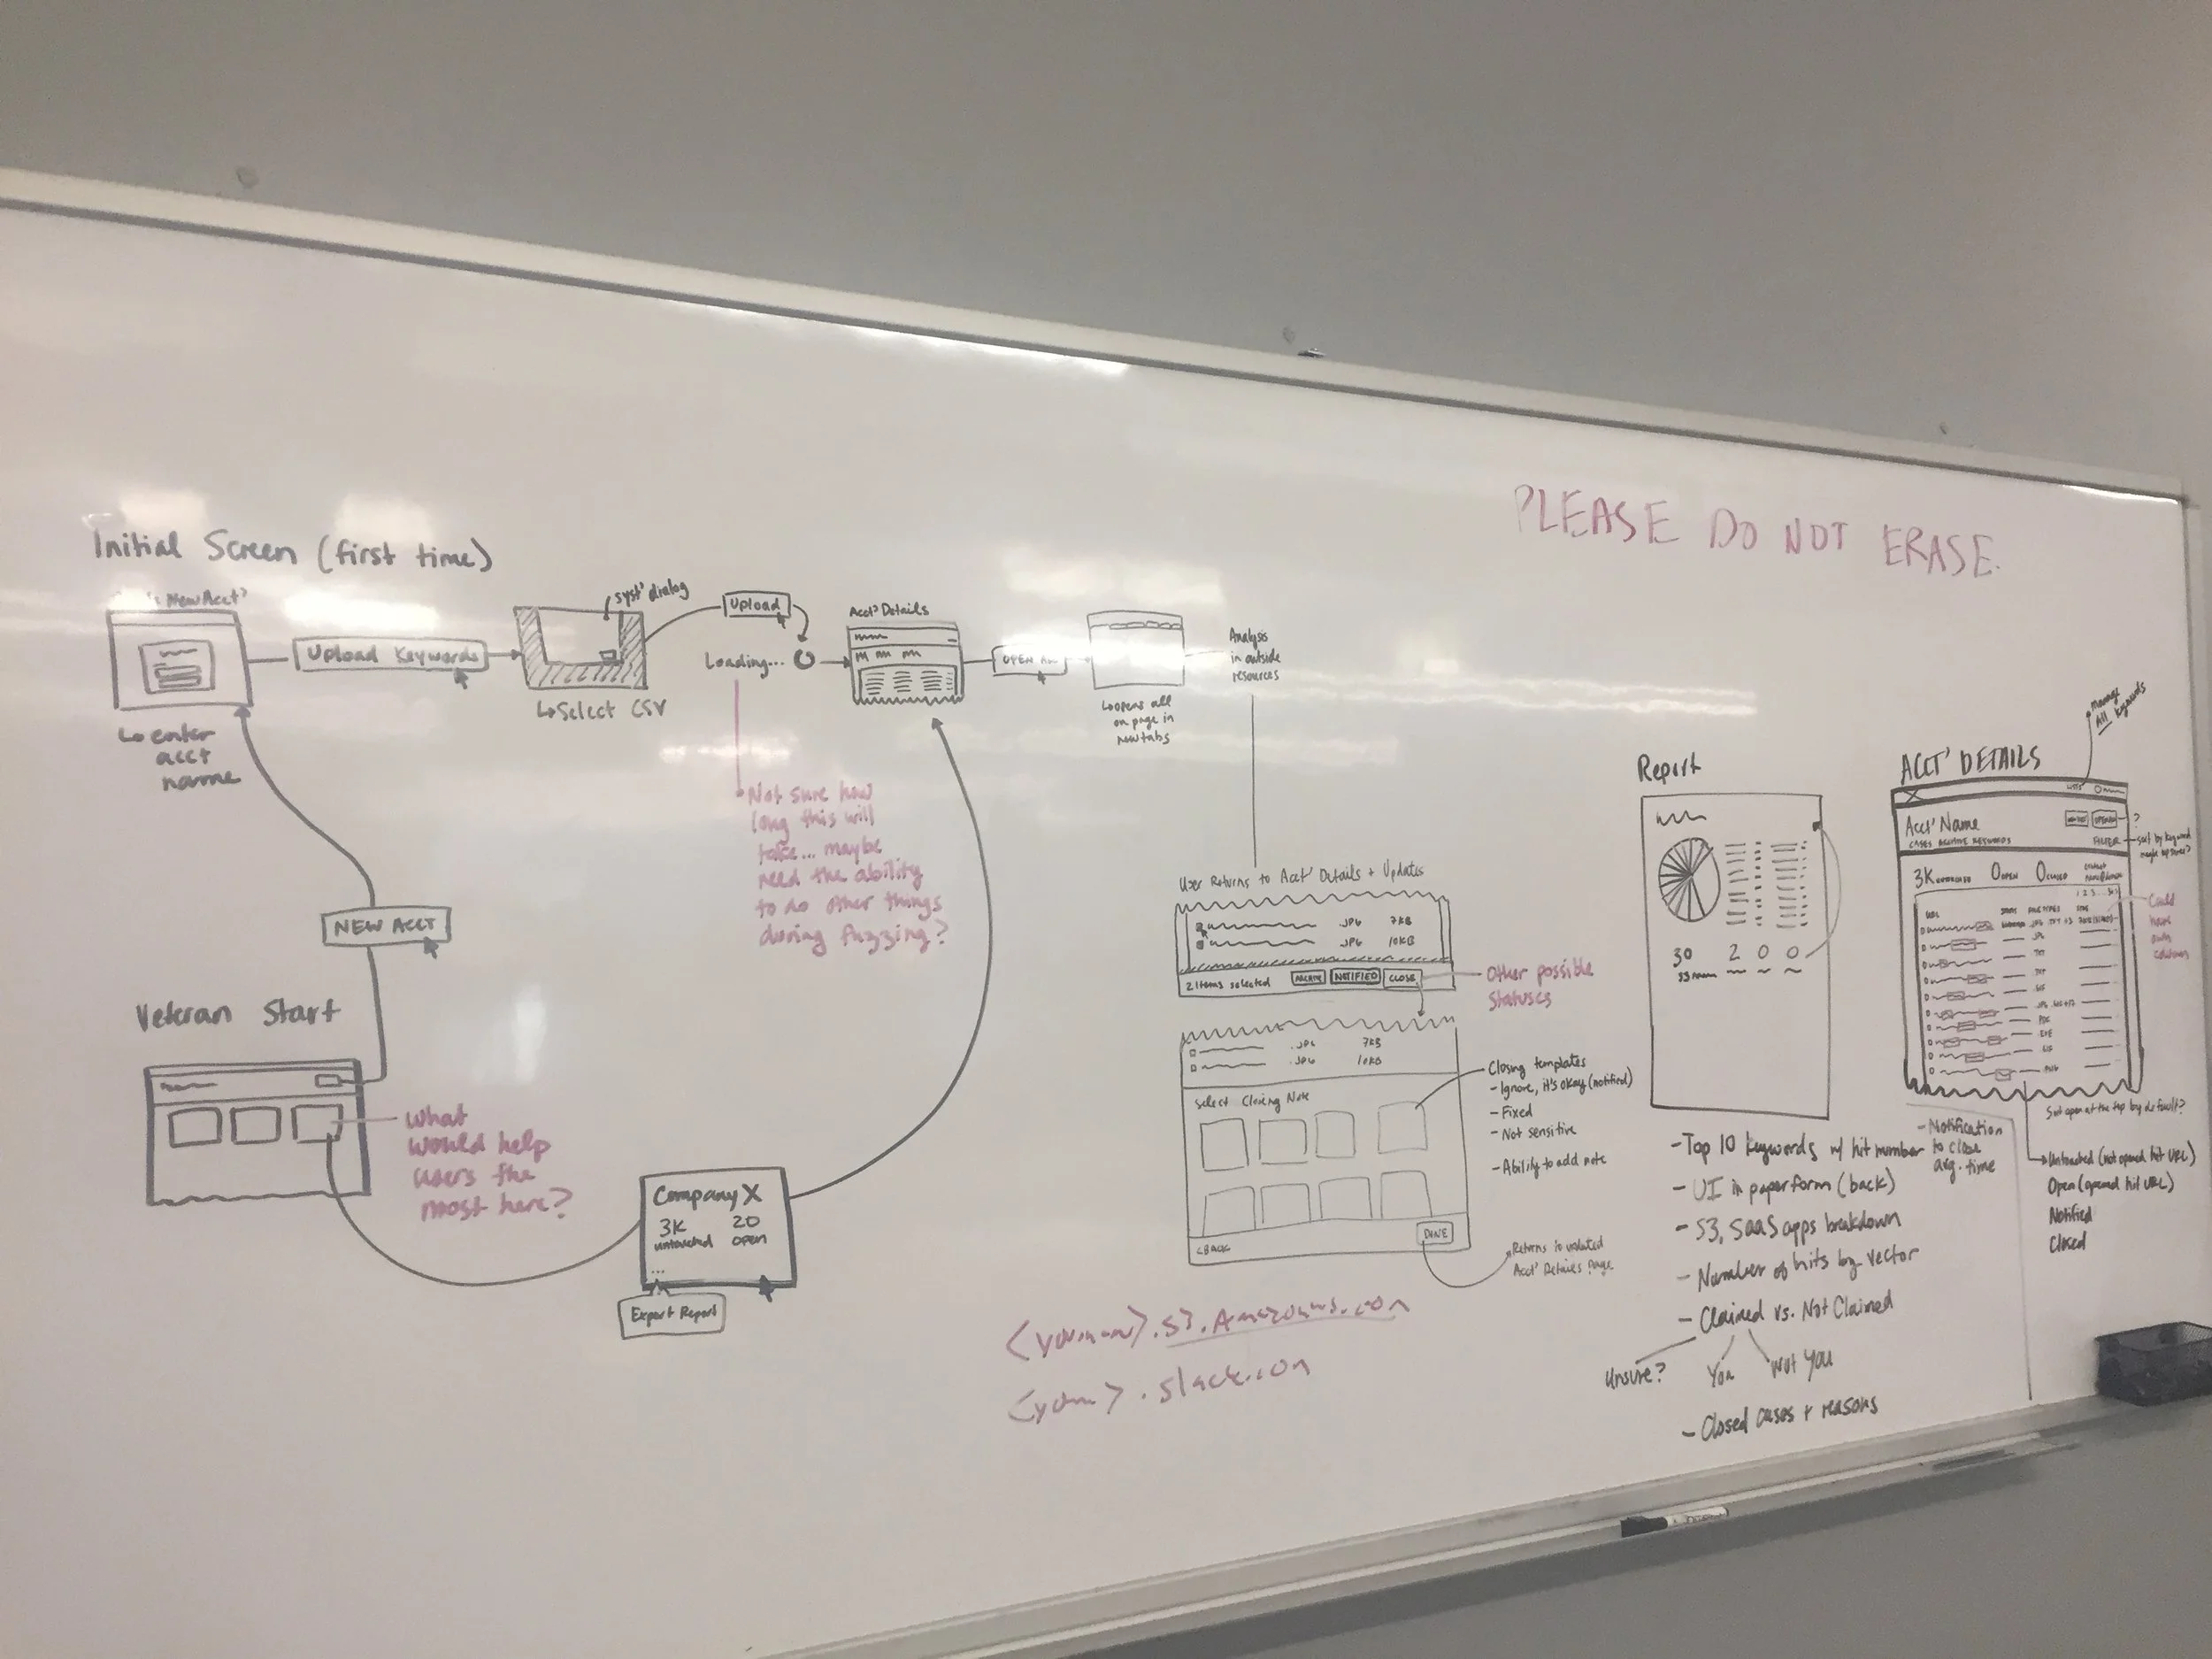 PLEASE DO NOT ERASE.
Initial Screen (first time)
New Acct?
↳ enter
acct
name
Upload Keywords
syst' dialog
↳ Select CSV
Upload
Loading...
Not sure how
long this will
take... maybe
need the ability
to do other things
during fuzzing?
Acct' Details
OPEN ALL
↳ opens all
on page in
new tabs
Analysis
in outside
resources
NEW ACCT
Veteran Start
What
would help
users the
most here?
Company X
3K 20
untouched open
...
Export Report
User Returns to Acct' Details + Updates
.JPG 7KB
.JPG 10KB
2 Items selected NOTIFIED CLOSE
Other possible
statuses
.JPG 7KB
.JPG 10KB
Select Closing Note
<BACK
DONE
Closing templates
- Ignore, it's okay (notified)
- Fixed
- Not sensitive
- Ability to add note
Returns to updated
Acct' Details Page.
.s3.Amazonaws.com
.slack.com
Report
30 2 0 0
- Top 10 keywords w/ hit number
- UI in paper form (back)
- S3, SaaS apps breakdown
- Number of hits by vector
- Claimed vs. Not Claimed
Unsure? You Not You
- Closed cases + reasons
Manage
All Keywords
ACCT' DETAILS
Acct' Name
?
CASES ARCHIVE KEYWORDS
FILTER
sort by keyword
3K UNTOUCHED 0 OPEN 0 CLOSED
URL
Could
have
own
column
Sort open at the top by default?
- Notification
to close
avg. time
Untouched (not opened hit URL)
Open (opened hit URL)
Notified
Closed